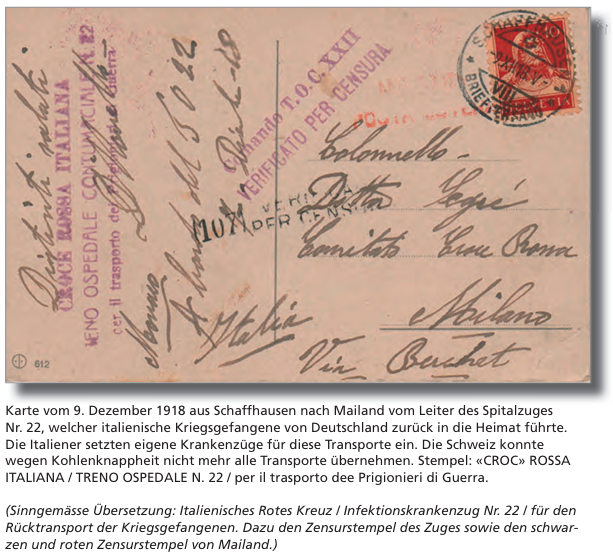 Distinti saluti
CROCE ROSSA ITALIANA
TRENO OSPEDALE CONTUMACIALE N. 22
per il trasporto dei Prigionieri di Guerra
Monaco
A bordo del T. O 22
Comando T. O. C. XXII
VERIFICATO PER CENSURA
SCHAFFHAUSEN
BRIEFVERSAND
VIII
HELVETIA
POSTA ESTERA
107
VERIFICATO
PER CENSURA
Colonnello
Dottor
Comitato Croce Rossa
Milano
Italia
Via Berchet
612
Karte vom 9. Dezember 1918 aus Schaffhausen nach Mailand vom Leiter des Spitalzuges
Nr. 22, welcher italienische Kriegsgefangene von Deutschland zurück in die Heimat führte.
Die Italiener setzten eigene Krankenzüge für diese Transporte ein. Die Schweiz konnte
wegen Kohlenknappheit nicht mehr alle Transporte übernehmen. Stempel: «CROC» ROSSA
ITALIANA / TRENO OSPEDALE N. 22 / per il trasporto dee Prigionieri di Guerra.
(Sinngemässe Übersetzung: Italienisches Rotes Kreuz / Infektionskrankenzug Nr. 22 / für den
Rücktransport der Kriegsgefangenen. Dazu den Zensurstempel des Zuges sowie den schwar-
zen und roten Zensurstempel von Mailand.)